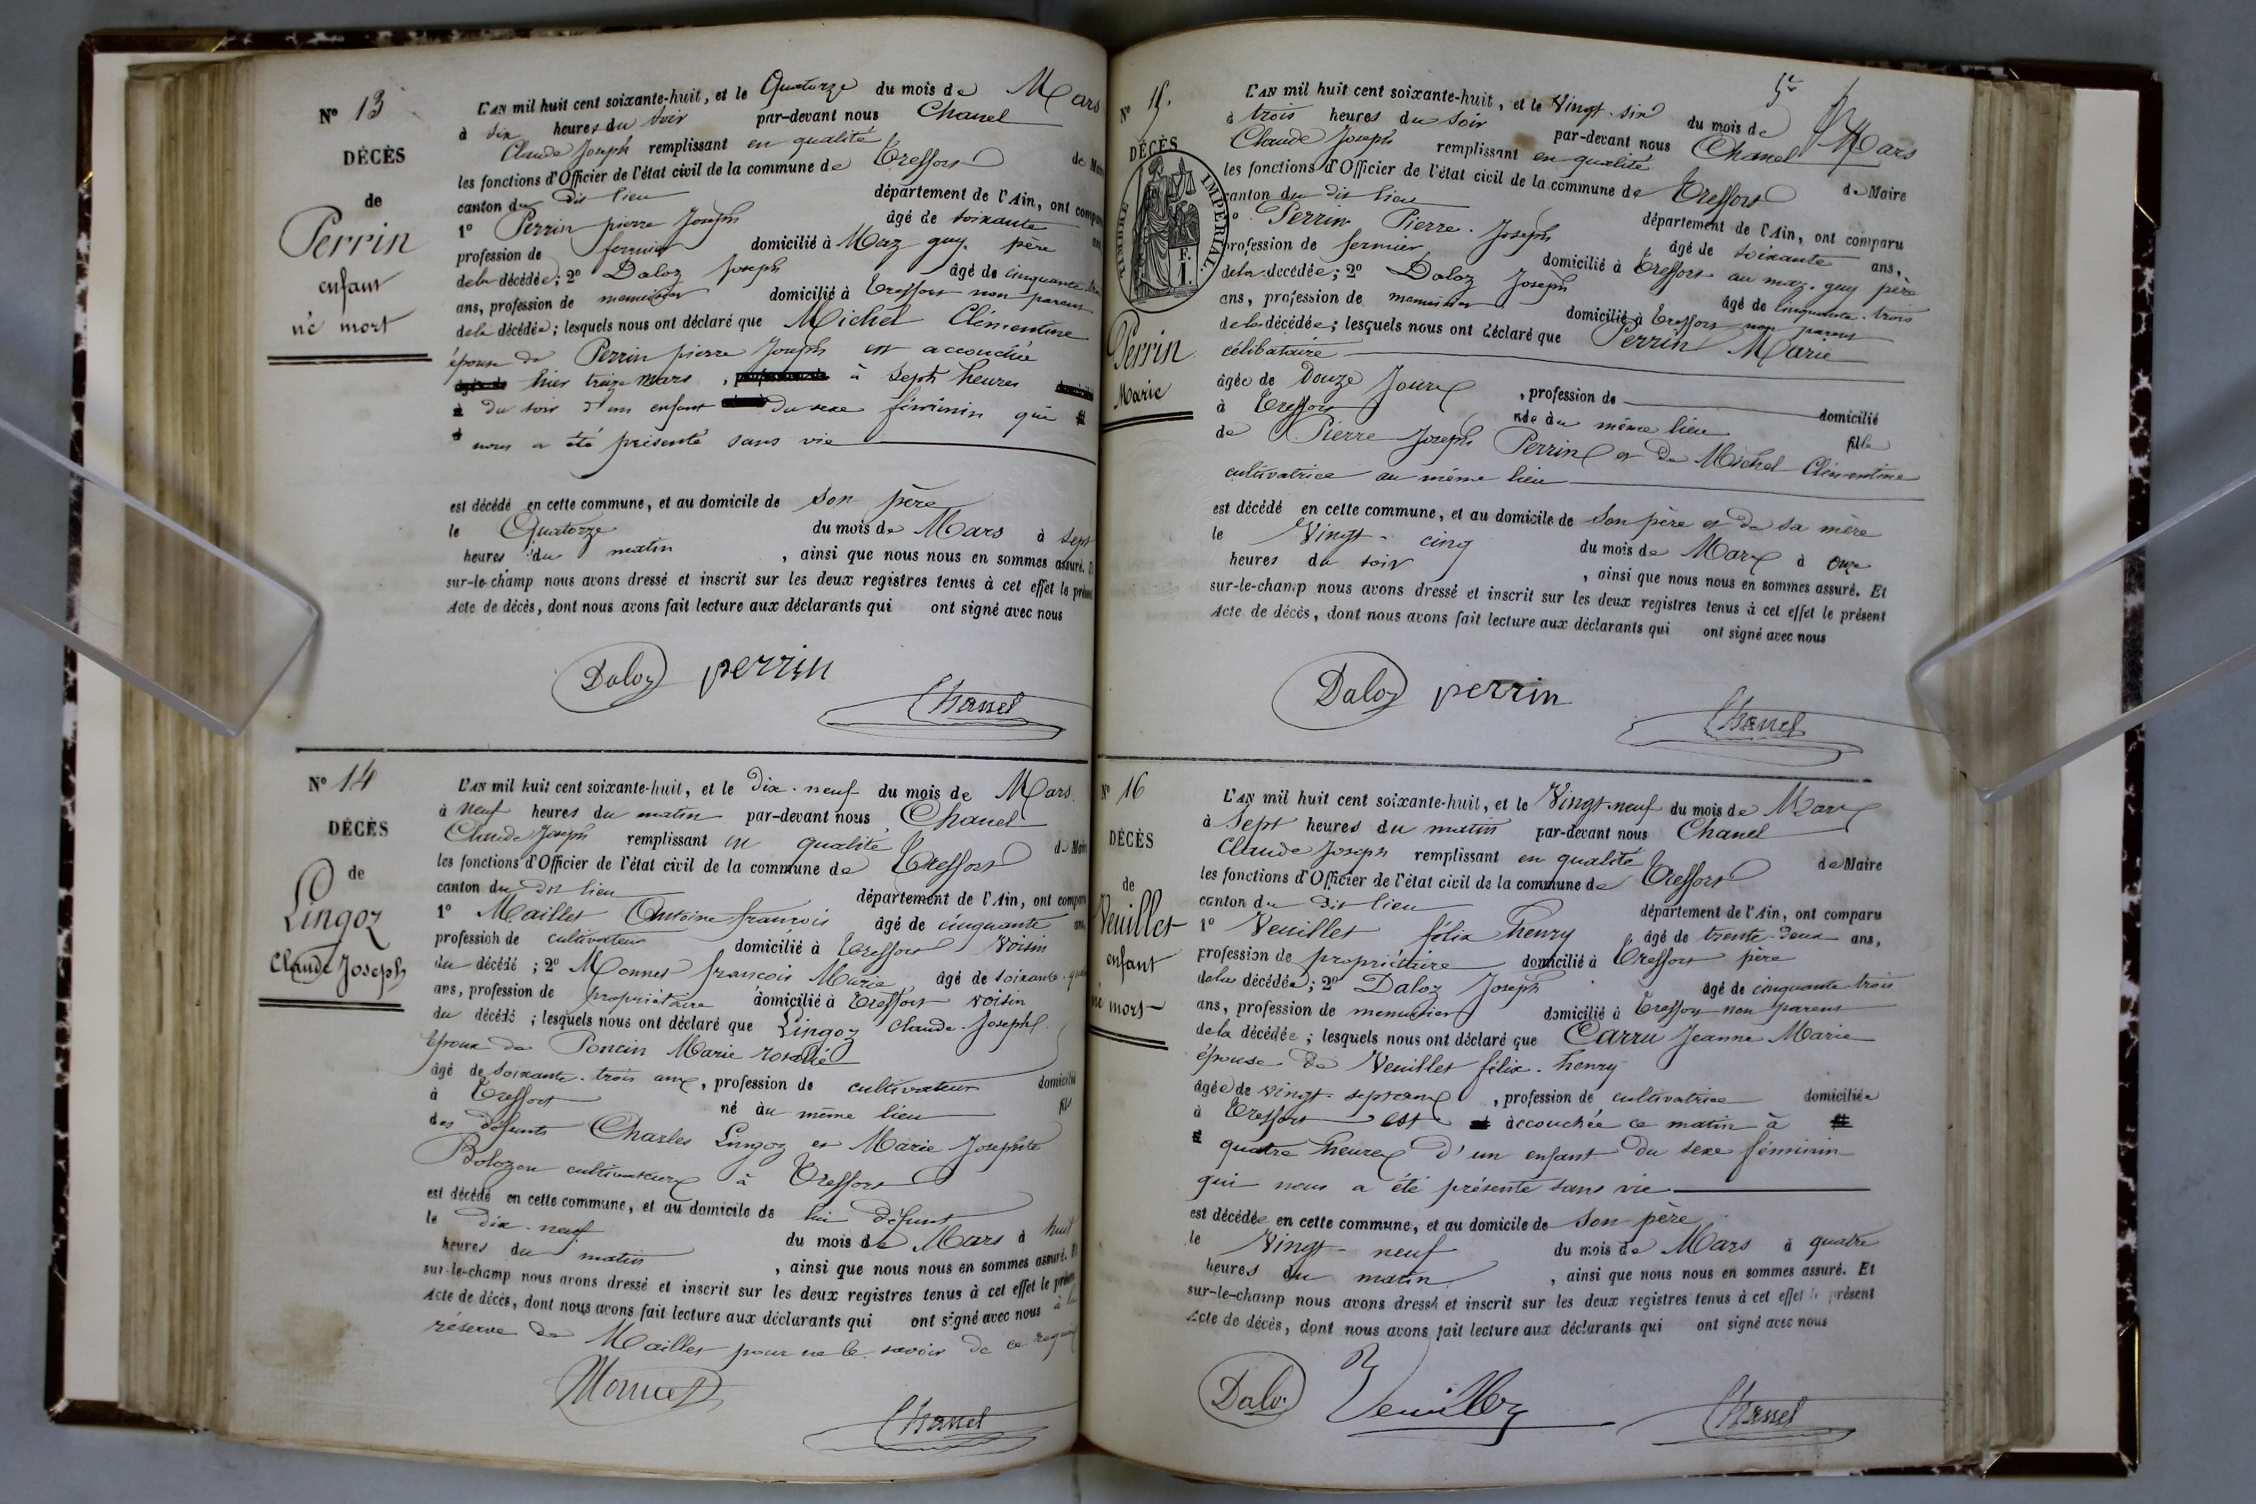 N° 13
DÉCÈS
de
Perrin
enfant
né mort
L'AN mil huit cent soixante-huit, et le Quatorze du mois de Mars
à six heures du soir par-devant nous Chanel
Claude Joseph remplissant en qualité de Maire
les fonctions d'Officier de l'état civil de la commune de Treffort
canton du dit lieu département de l'Ain, ont comparu
1° Perrin pierre Joseph âgé de soixante ans
profession de fermier domicilié à Maz guy père
de la décédée; 2° Daloz Joseph âgé de cinquante
ans, profession de menuisier domicilié à Treffort non parent
de la décédée; lesquels nous ont déclaré que Michel Clémentine
épouse de Perrin pierre Joseph est accouchée
hier treize mars, à sept heures
du soir d'un enfant du sexe féminin qui
nous a été présenté sans vie
est décédé en cette commune, et au domicile de son père
le Quatorze du mois de Mars à sept
heures du matin, ainsi que nous nous en sommes assuré. Et
sur-le-champ nous avons dressé et inscrit sur les deux registres tenus à cet effet le présent
Acte de décès, dont nous avons fait lecture aux déclarants qui ont signé avec nous
Daloz perrin
Chanel
N° 14
DÉCÈS
de
Lingoz
Claude Joseph
L'AN mil huit cent soixante-huit, et le dix-neuf du mois de Mars
à neuf heures du matin par-devant nous Chanel
Claude Joseph remplissant en qualité de Maire
les fonctions d'Officier de l'état civil de la commune de Treffort
canton du dit lieu département de l'Ain, ont comparu
1° Maillet Antoine françois âgé de cinquante ans,
profession de cultivateur domicilié à Treffort voisin
du décédé; 2° Monnet françois Marie âgé de soixante
ans, profession de propriétaire domicilié à Treffort voisin
du décédé; lesquels nous ont déclaré que Lingoz Claude-Joseph
époux de Poncin Marie rosalie
âgé de soixante-trois ans, profession de cultivateur domicilié
à Treffort né au même lieu fils
des défunts Charles Lingoz et Marie Josephte
Bolozon cultivateurs à Treffort
est décédé en cette commune, et au domicile de lui défunt
le dix-neuf du mois de Mars à huit
heures du matin, ainsi que nous nous en sommes assuré. Et
sur-le-champ nous avons dressé et inscrit sur les deux registres tenus à cet effet le présent
Acte de décès, dont nous avons fait lecture aux déclarants qui ont signé avec nous à la
réserve de Maillet pour ne le savoir de ce requis
Monnet
Chanel
5e
N° 15.
DÉCÈS
TIMBRE IMPÉRIAL
F.
1.
Perrin
Marie
L'AN mil huit cent soixante-huit, et le Vingt-six du mois de Mars
à trois heures du soir par-devant nous Chanel
Claude Joseph remplissant en qualité de Maire
les fonctions d'Officier de l'état civil de la commune de Treffort
canton du dit lieu département de l'Ain, ont comparu
1° Perrin Pierre-Joseph âgé de soixante ans,
profession de fermier domicilié à Treffort au maz-guy père
de la décédée; 2° Daloz Joseph âgé de cinquante-trois
ans, profession de menuisier domicilié à Treffort non parent
de la décédée; lesquels nous ont déclaré que Perrin Marie
célibataire
âgée de Douze Jours, profession de domicilié
à Treffort née au même lieu fille
de Pierre Joseph Perrin et de Michel Clémentine
cultivatrice au même lieu
est décédé en cette commune, et au domicile de son père et de sa mère
le Vingt-cinq du mois de Mars à onze
heures du soir, ainsi que nous nous en sommes assuré. Et
sur-le-champ nous avons dressé et inscrit sur les deux registres tenus à cet effet le présent
Acte de décès, dont nous avons fait lecture aux déclarants qui ont signé avec nous
Daloz perrin
Chanel
N° 16
DÉCÈS
de
Veuillet
enfant
né mort
L'AN mil huit cent soixante-huit, et le Vingt-neuf du mois de Mars
à Sept heures du matin par-devant nous Chanel
Claude Joseph remplissant en qualité de Maire
les fonctions d'Officier de l'état civil de la commune de Treffort
canton du dit lieu département de l'Ain, ont comparu
1° Veuillet félix henry âgé de trente-deux ans,
profession de propriétaire domicilié à Treffort père
de la décédée; 2° Daloz Joseph âgé de cinquante trois
ans, profession de menuisier domicilié à Treffort non parent
de la décédée; lesquels nous ont déclaré que Carru Jeanne Marie
épouse de Veuillet félix-henry
âgée de vingt-sept ans, profession de cultivatrice domiciliée
à Treffort est accouchée ce matin à
quatre heures d'un enfant du sexe féminin
qui nous a été présenté sans vie
est décédée en cette commune, et au domicile de son père
le Vingt-neuf du mois de Mars à quatre
heures du matin, ainsi que nous nous en sommes assuré. Et
sur-le-champ nous avons dressé et inscrit sur les deux registres tenus à cet effet le présent
Acte de décès, dont nous avons fait lecture aux déclarants qui ont signé avec nous
Daloz Veuillet
Chanel